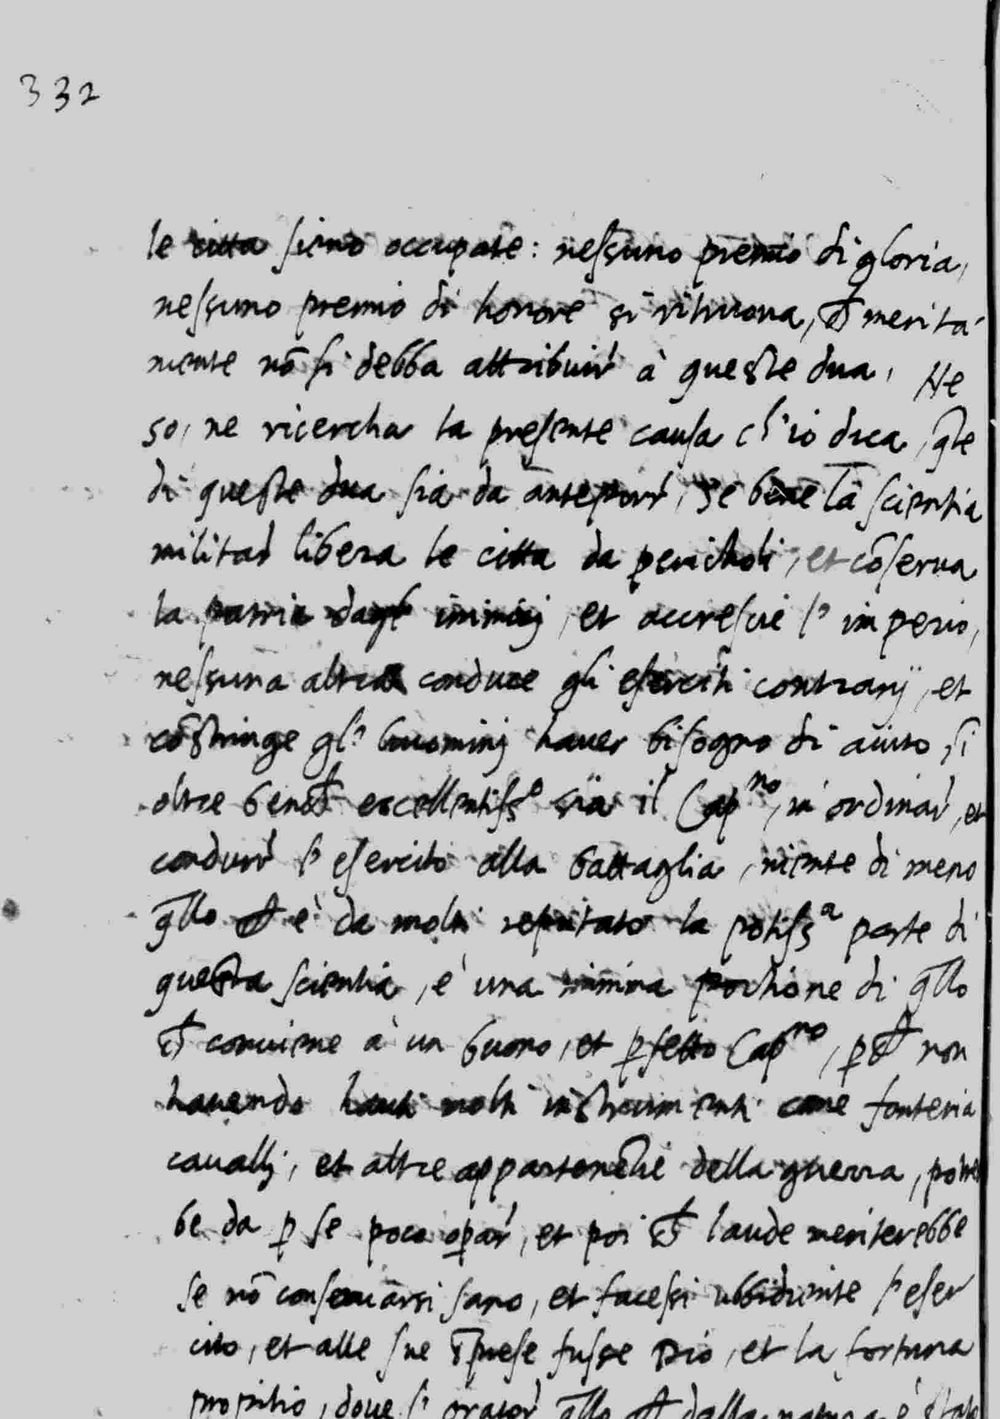 332
le citta sieno occupate: nessuno premio di gloria,
nessuno premio di honore si ritruova, ch̄ merita-
mente nō si debba attribuir à queste dua, Ne
so, ne ricercha la presente causa ch'io dica, q̄le
di queste dua sia da anteporr, se bene la scientia
militar libera le citta da pericholi, et cōserva
la patria dagl' inimicj, et accrescie l' imperio,
nessuna altra conduce gli eserciti contrarij, et
cōstringe gl' huominj haver bisogno di aiuto, si
oltre bench̄ eccellentiss.o sia il Cap.no, in ordinar, et
condurr l' esercito alla battaglia, niente di meno
q̄llo ch̄ è da molti reputato la potiss.a parte di
questa scientia, è una minima portione di q̄llo
ch̄ conviene à un buono, et p̱fetto Cap.no, p̱ch̄ non
havendo molti instrumenti come fanteria
cavallj, et altre appartenētie della guerra, potreb
be da p̱ se poco op̱ar, et poi ch̄ laude meriterebbe
se nō conservarsi sano, et facessi ubbidiente l' eser
cito, et alle sue īprese fusse Dio, et la fortuna
propitio, dove l' orator q̄llo ch̄ dalla natura è stato